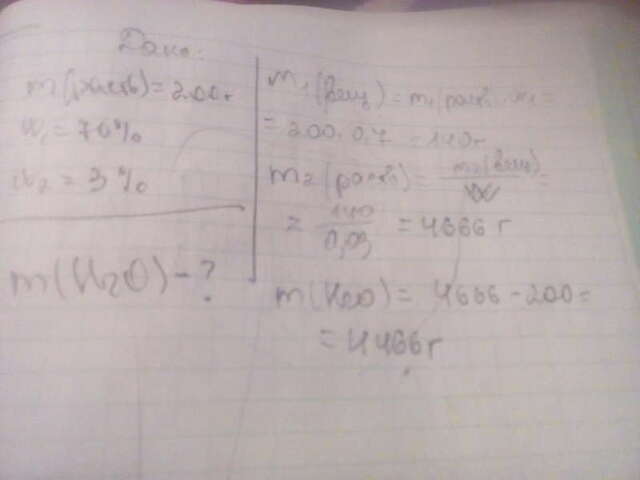 Дано:
m(раств)=200г
w₁=70%
w₂=3%
m(H₂O)-?
m₁(вещ)=m₁(раств)·w₁=
=200·0,7=140г
m₂(раств)=m₂(вещ)/w₂=
=140/0,03=4666г
m(H₂O)=4666-200=
=4466г